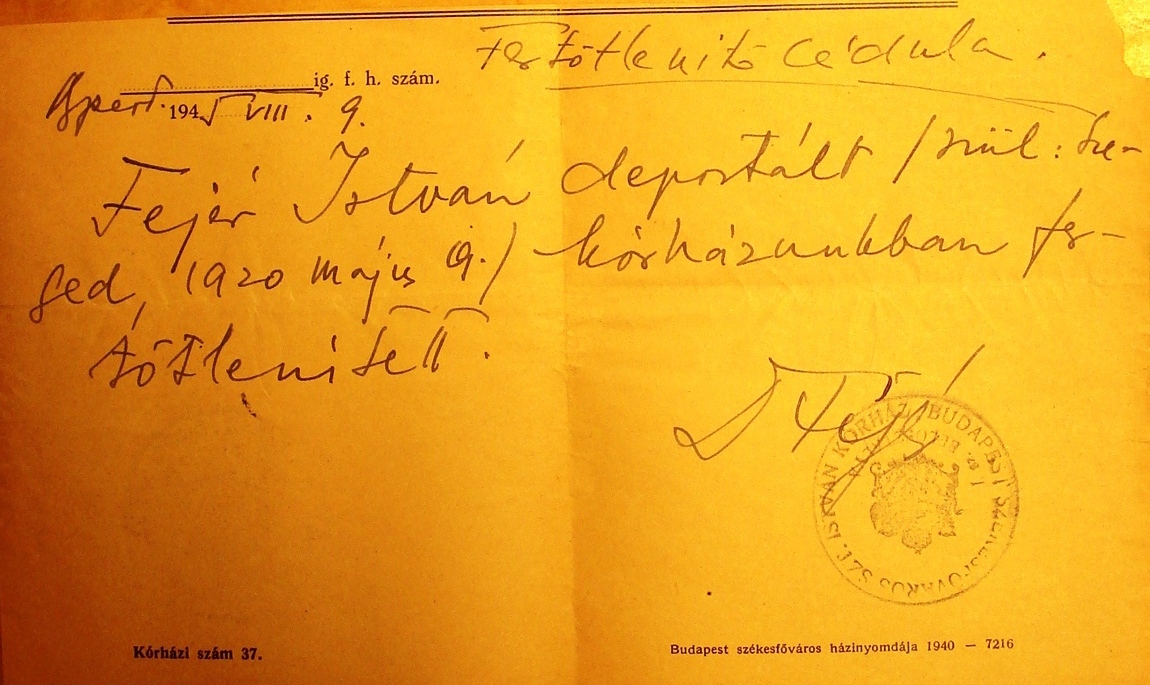 Fertőtlenítő cédula.
ig. f. h. szám.
Bpest. 1945 VIII. 9.
Fejér István deportált /szül: Sze-
ged, 1920 május 9./ kórházunkban fer-
tőtlenített.
BUDAPEST SZÉKESFŐVÁROS SZT. ISTVÁN KÓRHÁZ
Kórházi szám 37.
Budapest székesfőváros házinyomdája 1940 — 7216